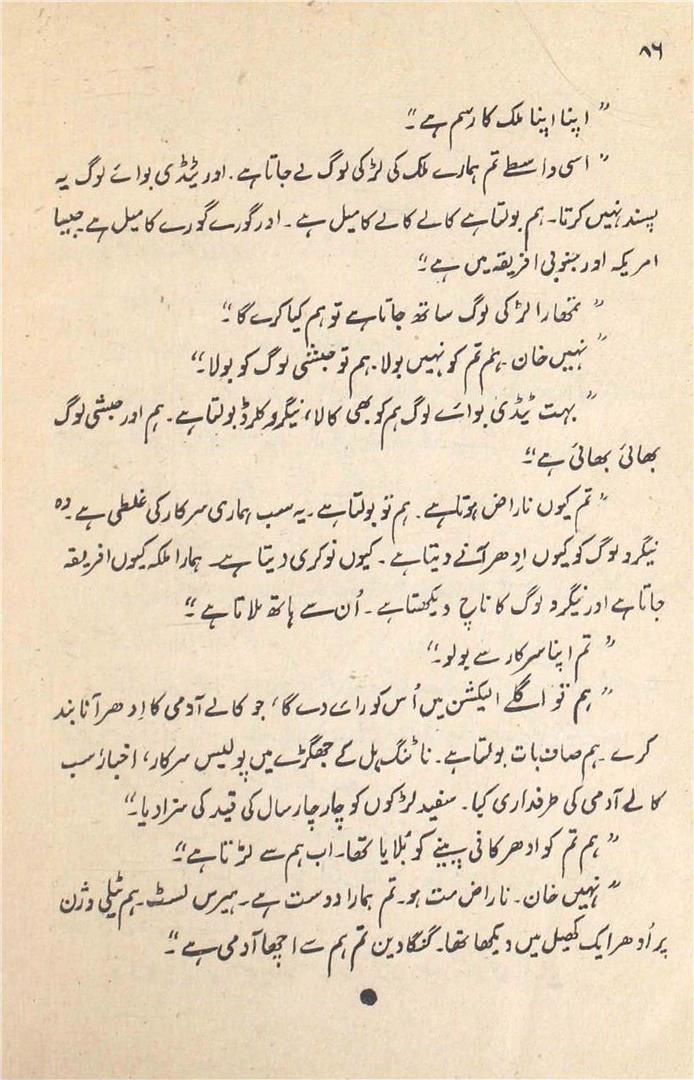 ۸۶
" اپنا اپنا ملک کا رسم ہے ۔"
" اسی واسطے تم ہمارے ملک کی لڑکی لوگ لے جاتا ہے ۔ اور ٹیڈی بوائے لوگ یہ
پسند نہیں کرتا۔ ہم بولتا ہے کالے کالے کا میل ہے ۔ اور گورے گورے کا میل ہے جیسا
امریکہ اور جنوبی افریقہ میں ہے ۔"
" تمھارا لڑکی لوگ ساتھ جاتا ہے تو ہم کیا کرے گا ۔"
" نہیں خان ۔ ہم تم کو نہیں بولا۔ ہم تو حبشی لوگ کو بولا ۔"
" بہت ٹیڈی بوائے لوگ ہم کو بھی کالا ، نیگرو کلرڈ بولتا ہے ۔ ہم اور حبشی لوگ
بھائی بھائی ہے ۔"
" تم کیوں ناراض ہوتا ہے ۔ ہم تو بولتا ہے ۔ یہ سب ہماری سرکار کی غلطی ہے ۔ وہ
نیگرو لوگ کو کیوں اِدھر آنے دیتا ہے ۔ کیوں نوکری دیتا ہے ۔ ہمارا ملکہ کیوں افریقہ
جاتا ہے اور نیگرو لوگ کا ناچ دیکھتا ہے ۔ اُن سے ہاتھ ملاتا ہے ۔"
" تم اپنا سرکار سے بولو ۔"
" ہم تو اگلے الیکشن میں اُس کو رائے دے گا ، جو کالے آدمی کا اِدھر آنا بند
کرے ۔ ہم صاف بات بولتا ہے ۔ ناٹنگ ہل کے جھگڑے میں پولیس سرکار ، اخبار سب
کالے آدمی کی طرفداری کیا ۔ سفید لڑکوں کو چار چار سال کی قید کی سزا دیا ۔"
" ہم تم کو ادھر کافی پینے کو بُلایا تھا۔ اب ہم سے لڑتا ہے ۔"
" نہیں خان ۔ ناراض مت ہو ۔ تم ہمارا دوست ہے ۔ ہیرس لسٹ ۔ ہم ٹیلی وژن
پر اُدھر ایک کھیل میں دیکھا تھا ۔ گنگا دین تم ہم سے اچھا آدمی ہے ۔"